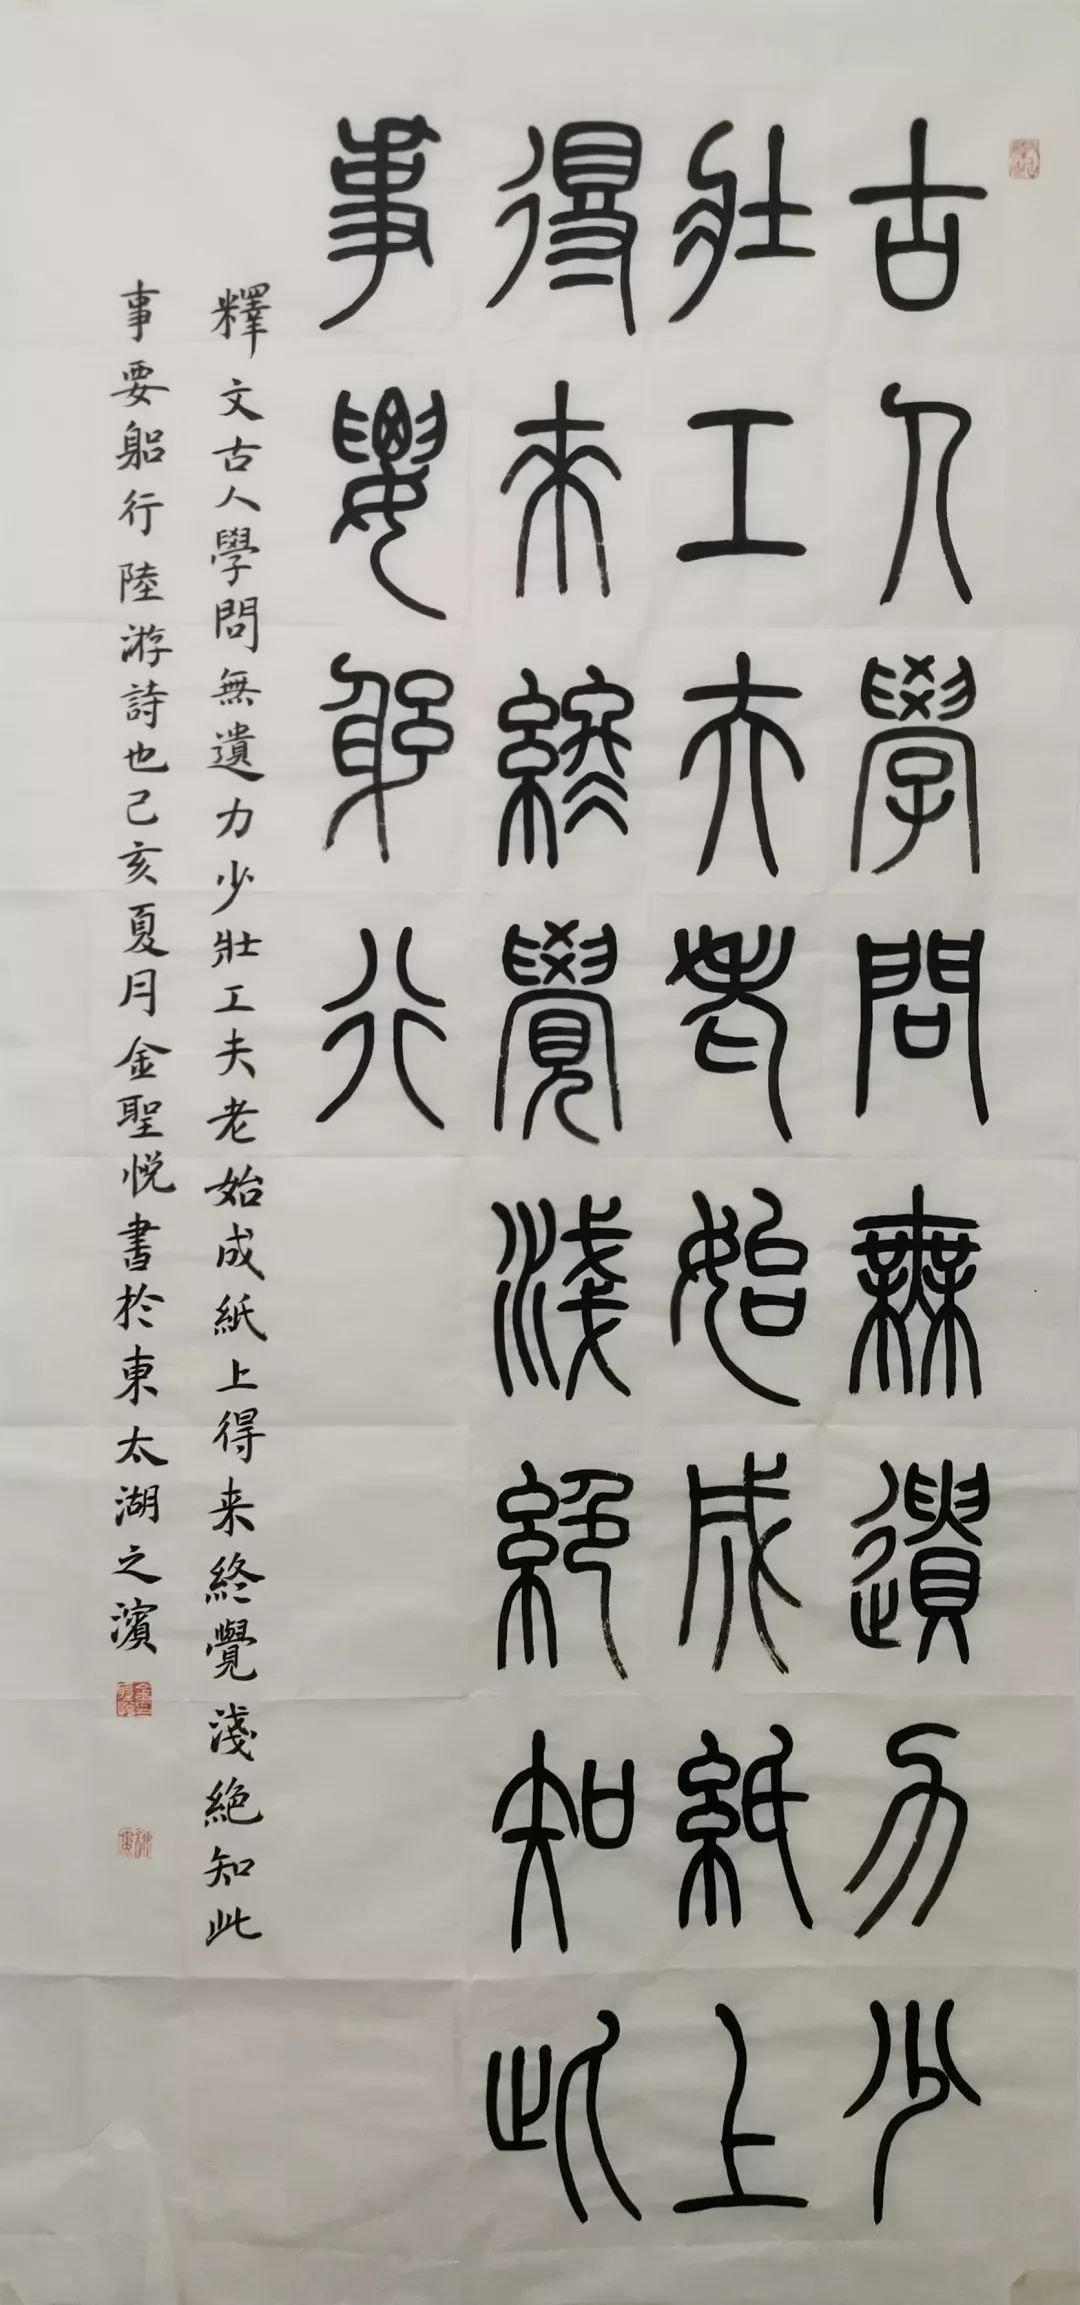 古人學問無遺力少
壯工夫老始成紙上
得來終覺淺絕知此
事要躬行
釋文古人學問無遺力少壯工夫老始成紙上得来終覺淺絶知此
事要躬行陸游詩也己亥夏月金聖悦書於東太湖之濱